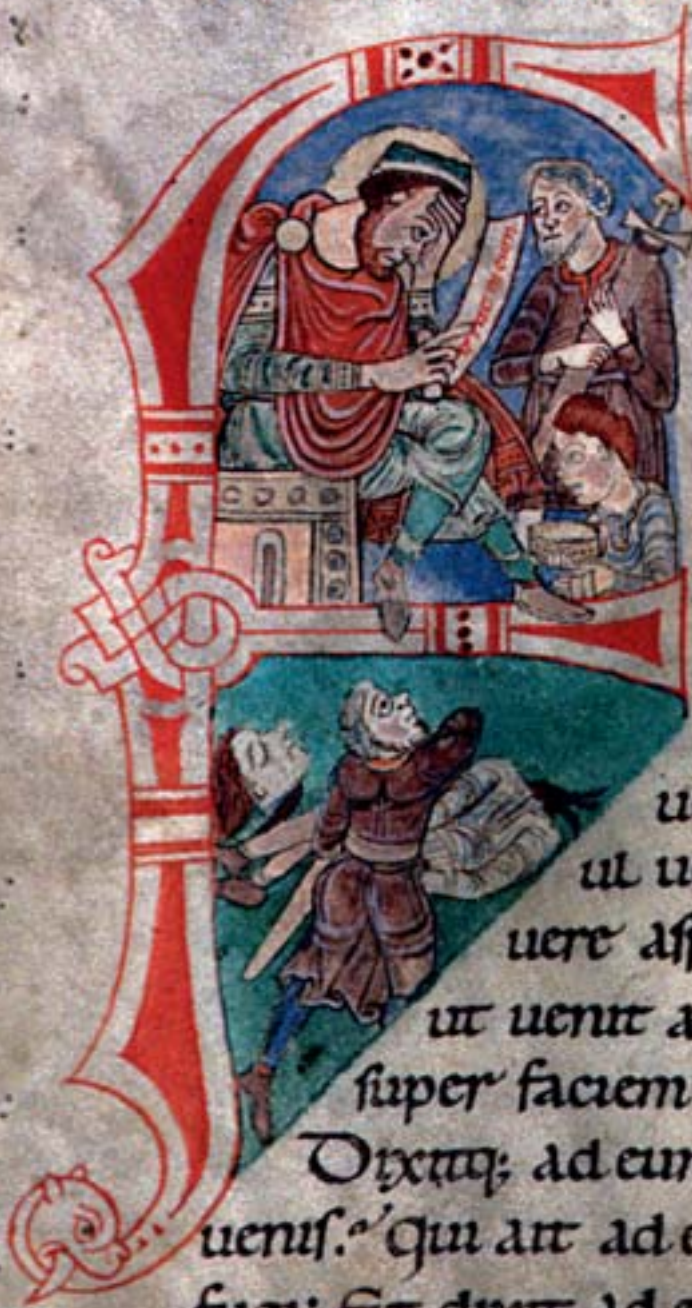 u
ul u
uere aſ
ut uenit a
ſuper faciem
Dixitq; ad eum
ueniſ. Qui ait ad e